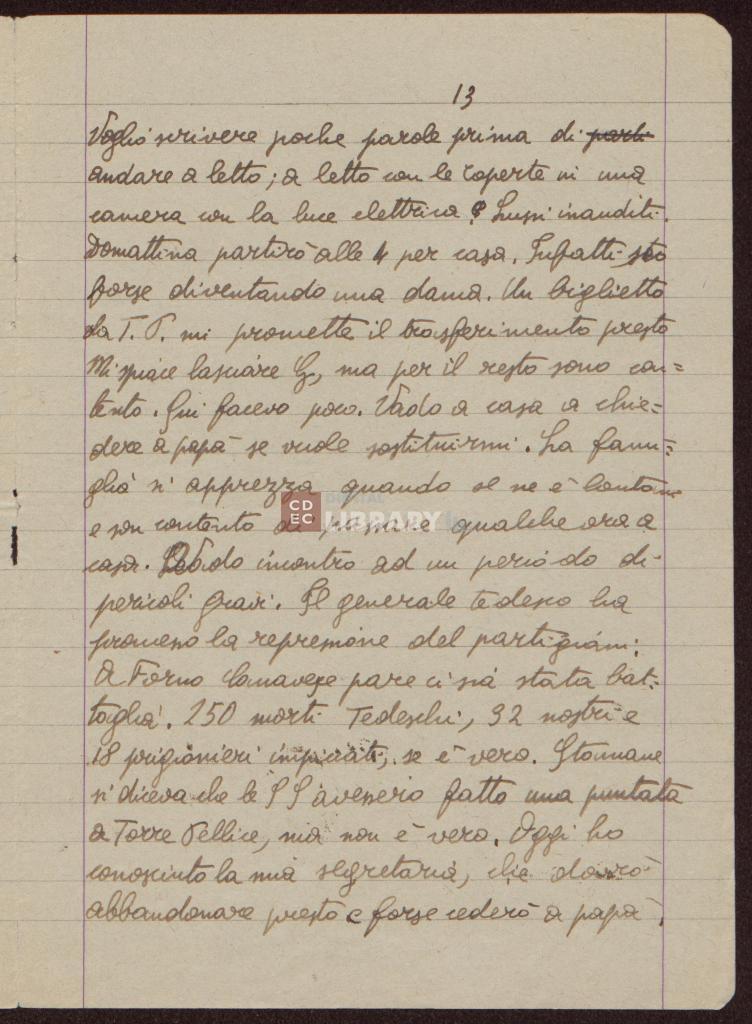 13
Voglio scrivere poche parole prima di parti
andare a letto; a letto con le coperte in una
camera con la luce elettrica! Lussi inauditi.
Domattina partirò alle 4 per casa. Infatti sto
forse diventando una dama. Un biglietto
da T. P. mi promette il trasferimento presto
Mi spiace lasciare G, ma per il resto sono con=
tento. Qui facevo poco. Vado a casa a chie=
dere a papà se vuole sostituirmi. La fami=
glia si apprezza quando se ne è lontani
e son contento di passare qualche ora a
casa. Vado incontro ad un periodo di
pericoli gravi. Il generale tedesco ha
promesso la repressione dei partigiani;
A Forno Canavese pare ci sia stata bat=
taglia. 250 morti Tedeschi, 32 nostri e
18 prigionieri impiccati, se è vero. Stamane
si diceva che le SS avessero fatto una puntata
a Torre Pellice, ma non è vero. Oggi ho
conosciuto la mia segretaria, che dovrò
abbandonare presto e forse cederò a papà.
CDEC
DIGITAL
LIBRARY